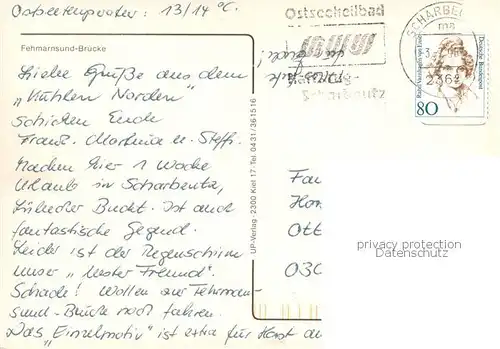 Ostseetemperatur: 13/14 °C.
Ostseeheilbad
Haffkrug-
Scharbeutz
SCHARBEUTZ
2361
Deutsche Bundespost
80
Fehmarnsund-Brücke
Liebe Grüße aus dem
„Kühlen Norden"
schicken Euch
Franz, Martina u. Steffi.
Machen hier 1 Woche
Urlaub in Scharbeutz,
Lübecker Bucht. Ist auch
fantastische Gegend.
Leider ist der Regenschirm
unser „bester Freund".
Schade! Wollen zur Fehmarn-
sund-Brücke noch fahren.
Das „Einzelmotiv" ist extra für Horst
UP-Verlag · 2300 Kiel 17 · Tel. 0431/361516
Fa
Ott
030
privacy protection
Datenschutz